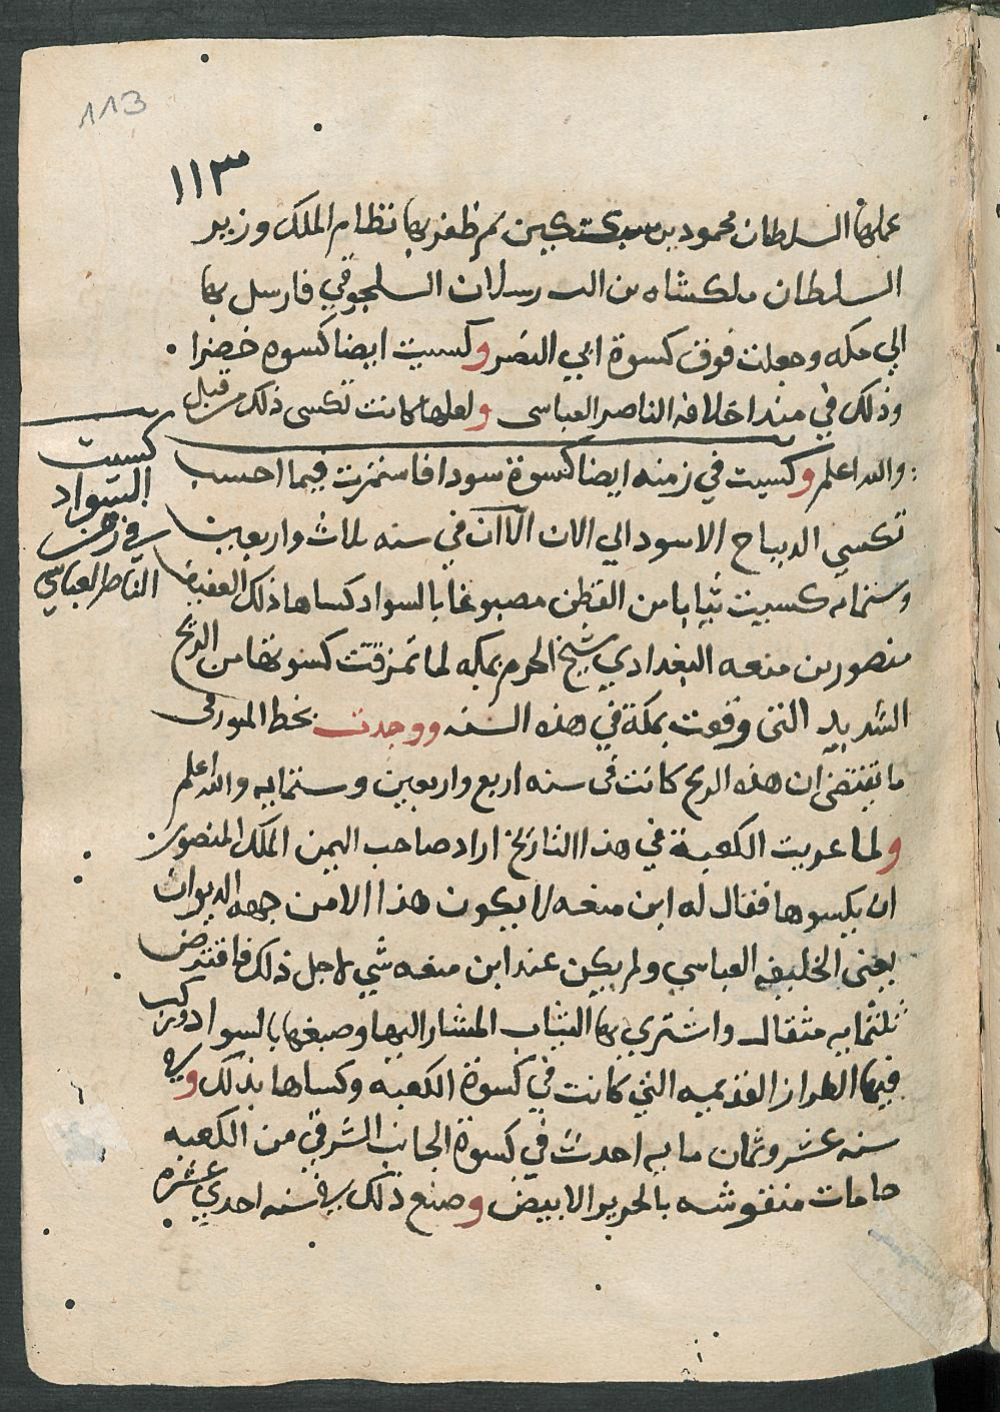 113
١١٣
عملها السلطان محمود بن سبكتكين ثم ظفر بها نظام الملك وزير
السلطان ملكشاه بن الب رسلان السلجوقي فارسل بها
الي مكه وجعلت فوق كسوة ابي النصر وكسيت ايضا كسوه خضرا
وذلك في مبتدا خلافه الناصر العباسى ولعلها كانت تكسى ذلك من قبل
والله اعلم وكسيت في زمنه ايضا كسوة سودا فاستمرت فيما احسب
تكسي الديباج الاسود الي الان الا ان في سنه ثلاث واربعين
وستمايه كسيت ثيابا من القطن مصبوغا بالسواد كساها ذلك العفيف
منصور بن منعه البغدادي شيخ الحرم بمكه لما تمزقت كسوتها من الريح
الشديد التى وقعت بمكة في هذه السنه ووجدت بخط الميورقى
ما يقتضى ان هذه الريح كانت فى سنه اربع واربعين وستمايه والله اعلم
ولما عريت الكعبة في هذا التاريخ اراد صاحب اليمن الملك المنصور
ان يكسوها فقال له ابن منعه لا يكون هذا الا من جهه الديوان
يعنى الخليفه العباسي ولم يكن عند ابن منعه شي لاجل ذلك فاقترض
ثلثمايه مثقال واشتري بها الثياب المشار اليها وصبغها بالسواد وركب
فيها الطراز القديميه التي كانت في كسوة الكعبه وكساها بذلك وفي
سنه عشر وثمان مايه احدث في كسوة الجانب الشرقي من الكعبه
جامات منقوشه بالحرير الابيض وصنع ذلك في سنه احدي عشره
كسيت
السواد
في زمن
الناصر العباسي